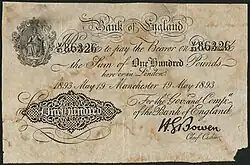 Bank of England
86326
to pay the Bearer on
86326
the Sum of One Hundred Pounds
here or in London
1893 May 19 Manchester 19 May 1893
For the Gov: and Comp:a
of the Bank of England
One Hundred
Chief Cashier